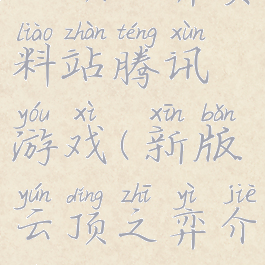 liào zhàn téng xùn
料站腾讯
yóu xì xīn bǎn
游戏(新版
yún dǐng zhī yì jiè
云顶之弈介